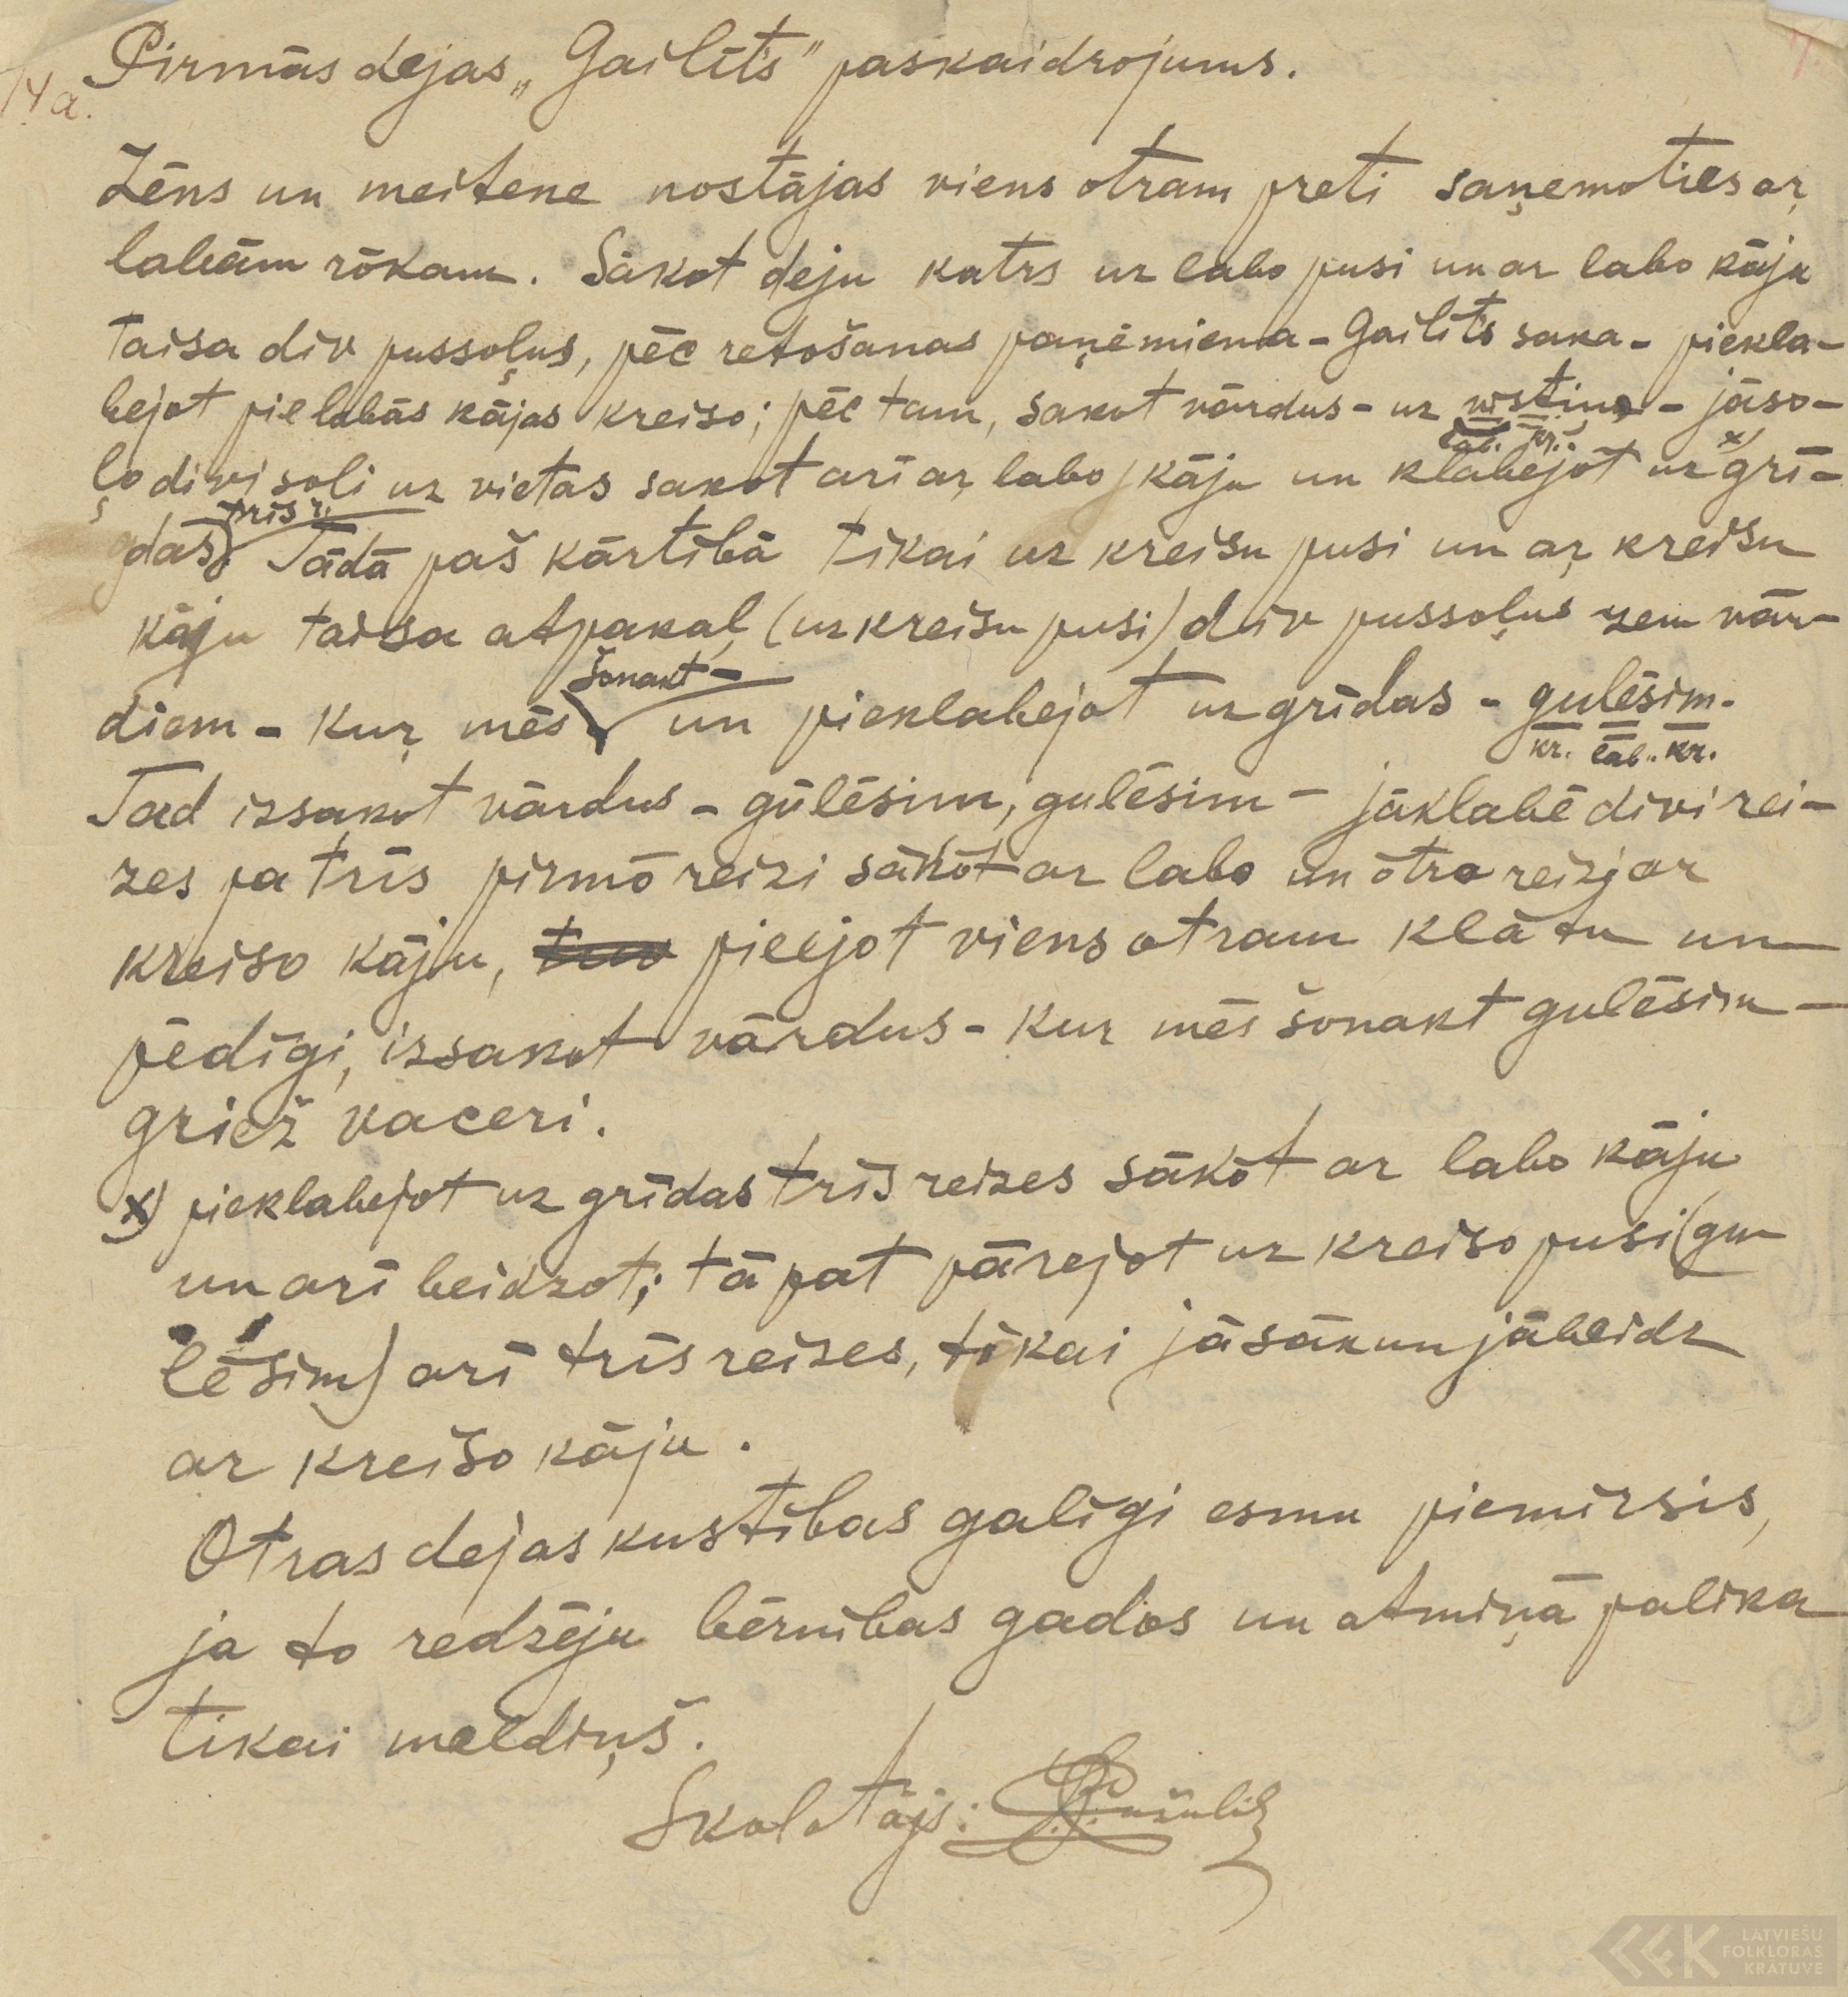 14a. Pirmās dejas „Gailīts” paskaidrojums.
Zēns un meitene nostājas viens otram preti saņemoties ar
labām rōkam. Sākot deju katrs uz labo pusi un ar labo kāju
taisa div pussoļus, pēc retošanas paņēmiena - Gailīts saka - piekla-
bejot pie labās kājas kreiso; pēc tam, sakot vārdus - uz vistiņo - jāso-
lab. kr.
ļo divi soli uz vietas sakot arī ar labo kāju un klabejot uz x) grī-
trīs r.
das. Tādā paš kārtībā tikai uz kreisu pusi un aŗ kreisu
kāju taisa atpakaļ (uz kreisu pusi) div pussoļus zem vār-
šonakt -
diem - kuŗ mēs un pieklabejot uz grīdas - gulēsim.
kr. lab. kr.
Tad izsakot vārdus - gūlēsim, gulēsim - jāklabē divi rei-
zes pa trīs pirmō reizi sākot ar labo un ōtro reizi ar
kreiso kāju, pieejot viens otram klātu un
pēdīgi, izsakot vārdus - kur mēs šonakt gulēsim -
griež vaceri.
x) pieklabejot uz grīdas trīs reizes sākot ar labo kāju
un arī beidzot; tāpat pārejot uz kreiso pusi (gu
lēsim) arī trīs reizes, tikai jāsāk un jābeidz
ar kreiso kāju.
Otras dejas kustības galīgi esmu piemirsis,
ja to redzēju bērnības gados un atmiņā palika
tikai meldiņš.
Skolotājs:
LATVIEŠU
FOLKLORAS
KRATUVE